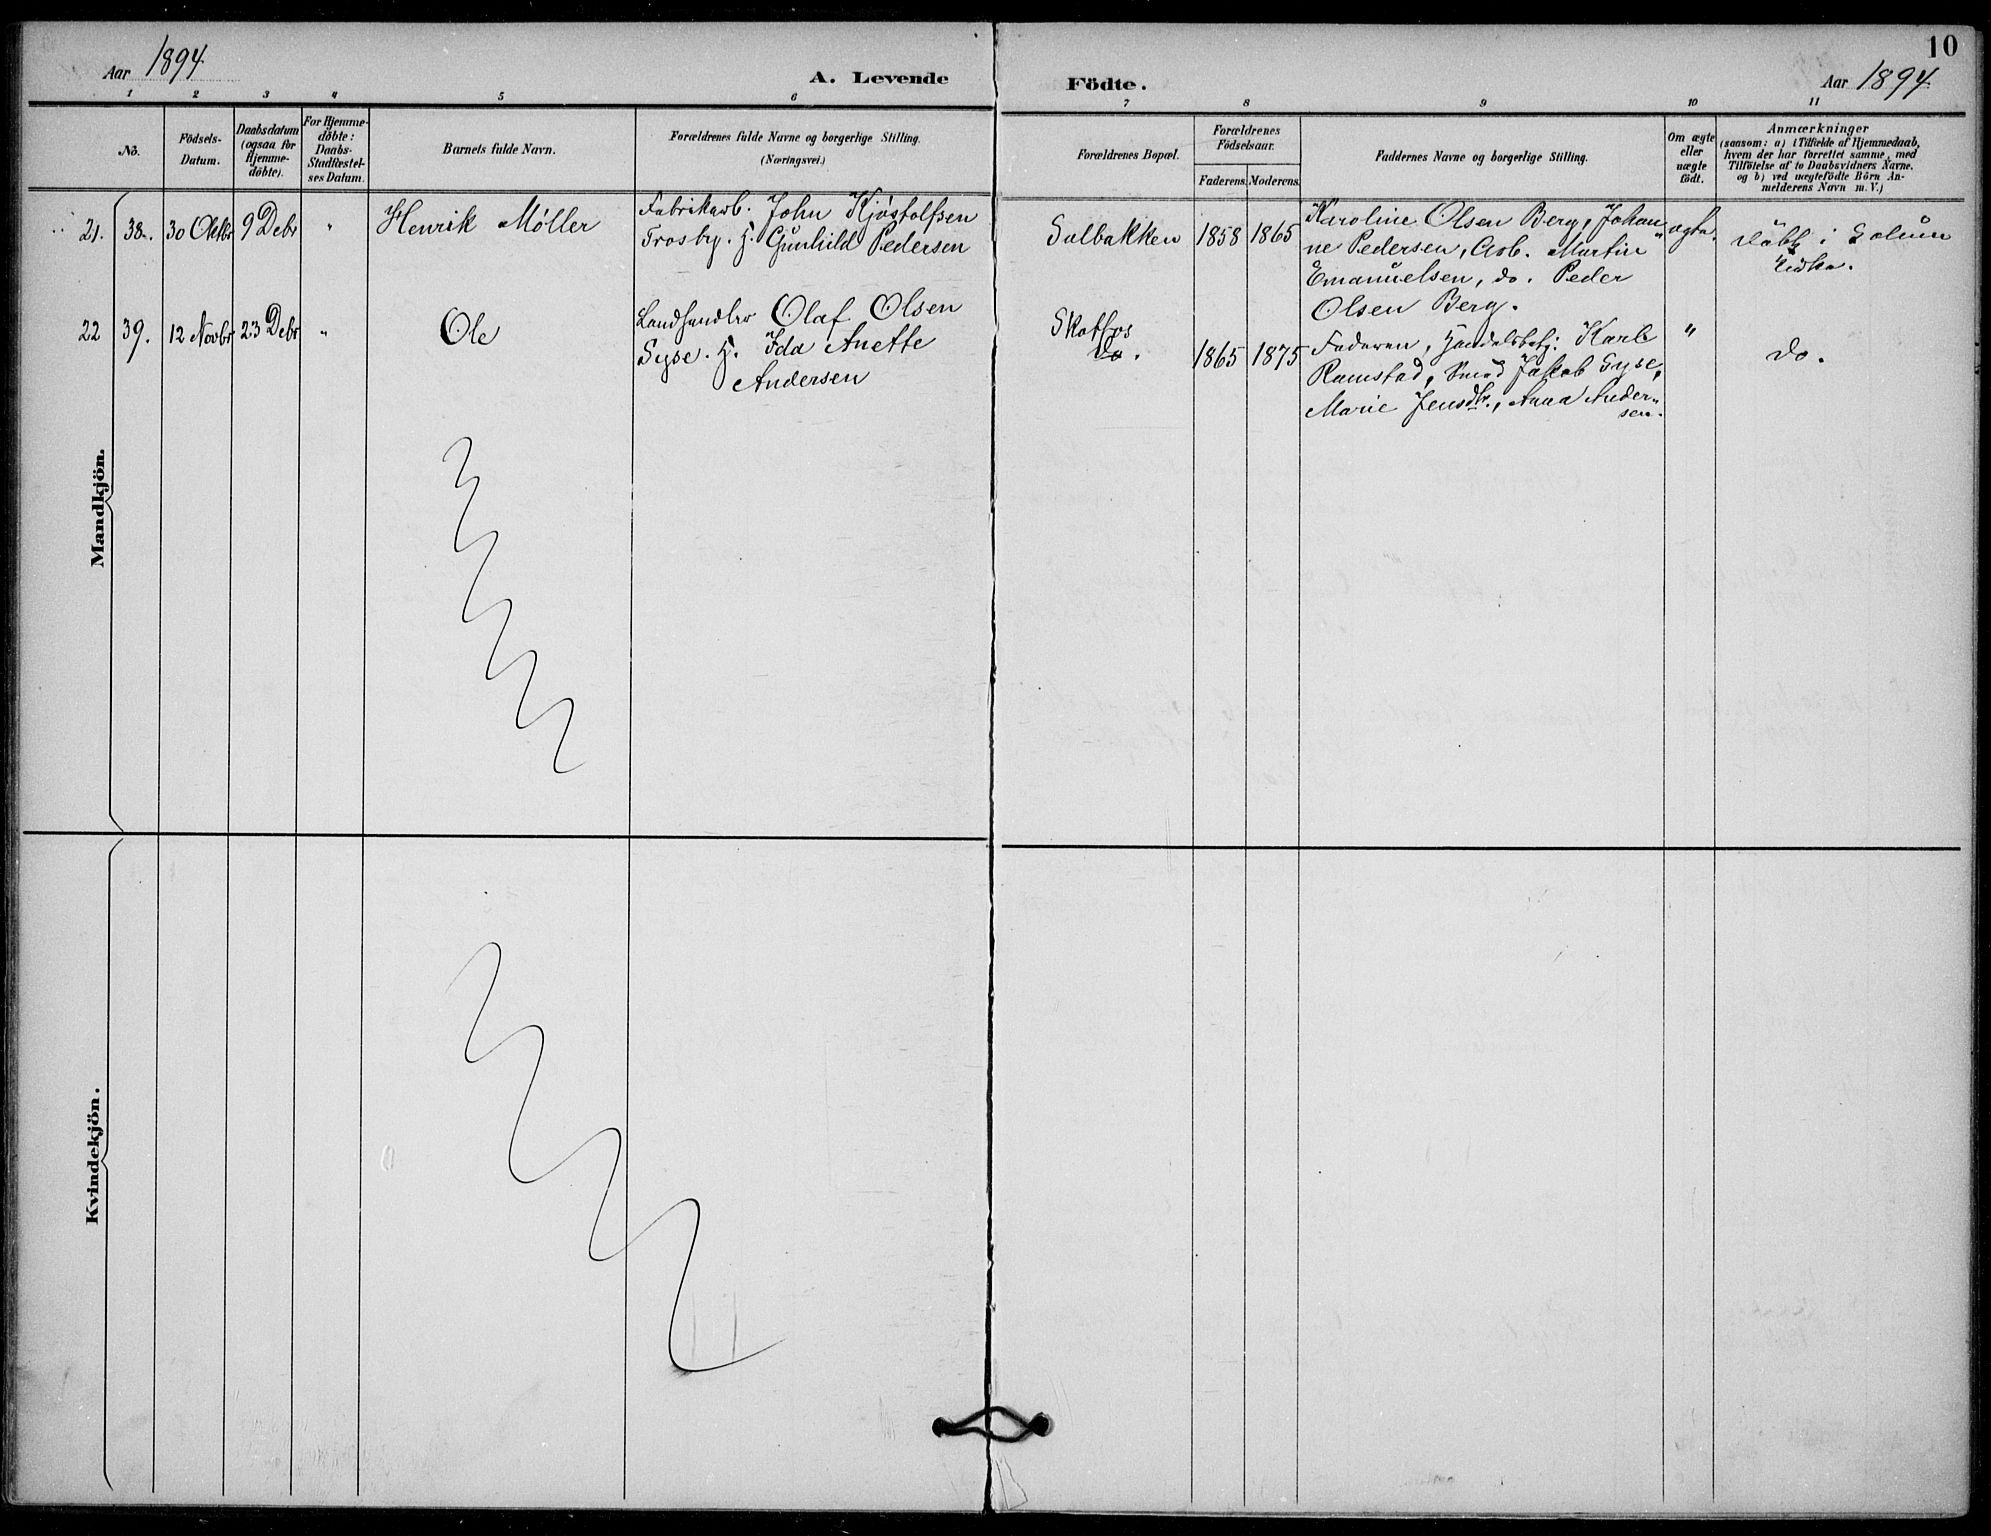 10
Aar 1894
A. Levende Födte.
Aar 1894
1 2 3 4 5 6 7 8 9 10 11
No.
Födsels-
Datum.
Daabsdatum
(ogsaa for
Hjemme-
döbte).
For Hjemme-
döbte:
Daabs-
Stadfæstel-
ses Datum.
Barnets fulde Navn.
Forældrenes fulde Navne og borgerlige Stilling.
(Næringsvei.)
Forældrenes Bopæl.
Forældrenes
Födselsaar.
Faderens. Moderens.
Faddernes Navne og borgerlige Stilling.
Om ægte
eller
uægte
födt.
Anmærkninger
(saasom: a) i Tilfælde af Hjemmedaab,
hvem der har forrettet samme, med
Tilföielse af to Daabsvidners Navne.
og b) ved uægtefödte Börn An-
melderens Navn m. V.)
Mandkjön.
21. 38. 30 Oktbr 9 Debr " Henrik Møller
Fabrikarb. John Kjøstolfsen
Trosby. H. Gunhild Pedersen
Solbakken 1858 1865
Karoline Olsen Berg, Johan
ne Pedersen, Arb. Martin
Emanuelsen, do. Peder
Olsen Berg.
ægte.
Döbt i Solum
22 39. 12 Novbr 23 Debr " Ole
Landhandler Olaf Olsen
Syse. H. Ida Anette
Andersen
Skotfos
do. 1865 1875
Faderen, Karl
Ramstad, Smed Jakob Syse,
Marie Jensdtr., Anna Ander-
sen.
"
do.
Kvindekjön.